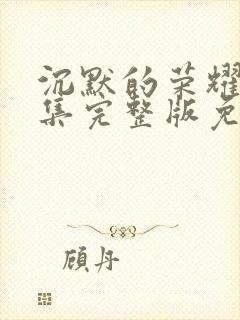 沉默的荣耀
集完整版免
顾丹